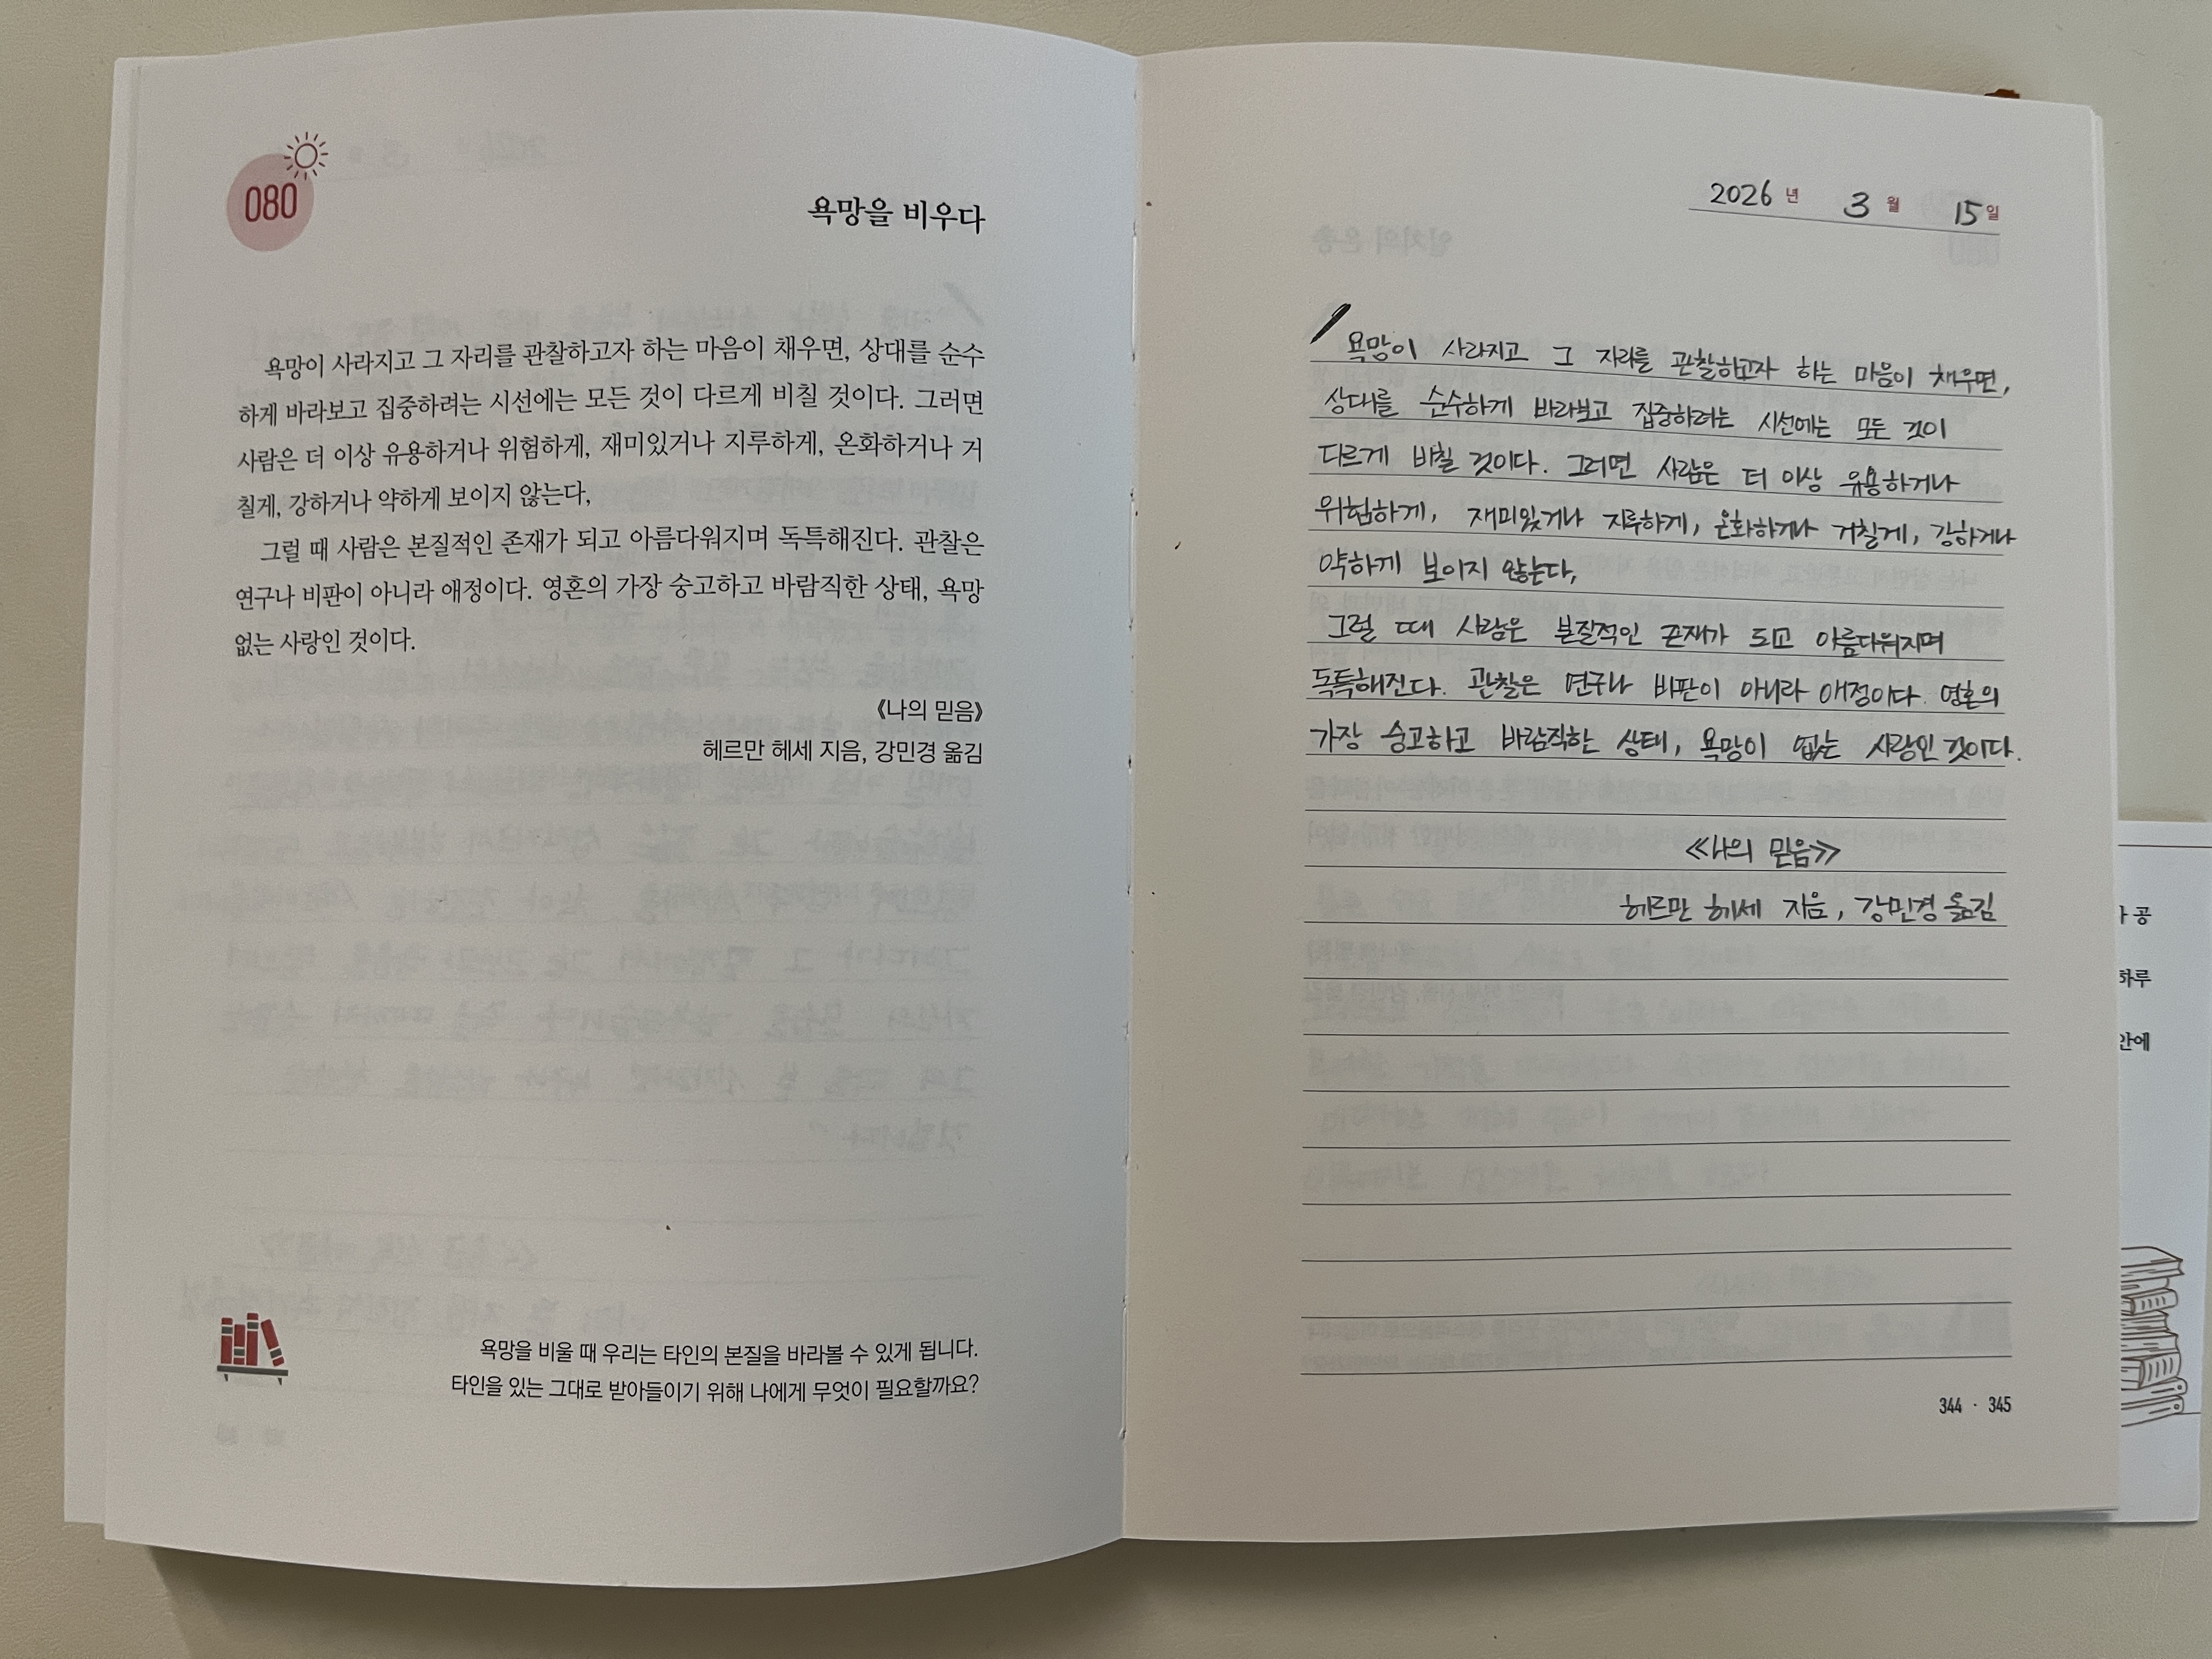 080
욕망을 비우다
욕망이 사라지고 그 자리를 관찰하고자 하는 마음이 채우면, 상대를 순수
하게 바라보고 집중하려는 시선에는 모든 것이 다르게 비칠 것이다. 그러면
사람은 더 이상 유용하거나 위험하게, 재미있거나 지루하게, 온화하거나 거
칠게, 강하거나 약하게 보이지 않는다,
그럴 때 사람은 본질적인 존재가 되고 아름다워지며 독특해진다. 관찰은
연구나 비판이 아니라 애정이다. 영혼의 가장 숭고하고 바람직한 상태, 욕망
없는 사랑인 것이다.
《나의 믿음》
헤르만 헤세 지음, 강민경 옮김
욕망을 비울 때 우리는 타인의 본질을 바라볼 수 있게 됩니다.
타인을 있는 그대로 받아들이기 위해 나에게 무엇이 필요할까요?
2026 년 3 월 15 일
욕망이 사라지고 그 자리를 관찰하고자 하는 마음이 채우면,
상대를 순수하게 바라보고 집중하려는 시선에는 모든 것이
다르게 비칠 것이다. 그러면 사람은 더 이상 유용하거나
위험하게, 재미있거나 지루하게, 온화하거나 거칠게, 강하거나
약하게 보이지 않는다,
그럴 때 사람은 본질적인 존재가 되고 아름다워지며
독특해진다. 관찰은 연구나 비판이 아니라 애정이다. 영혼의
가장 숭고하고 바람직한 상태, 욕망이 없는 사랑인 것이다.
《나의 믿음》
헤르만 헤세 지음, 강민경 옮김
344 · 345
공
하루
안에